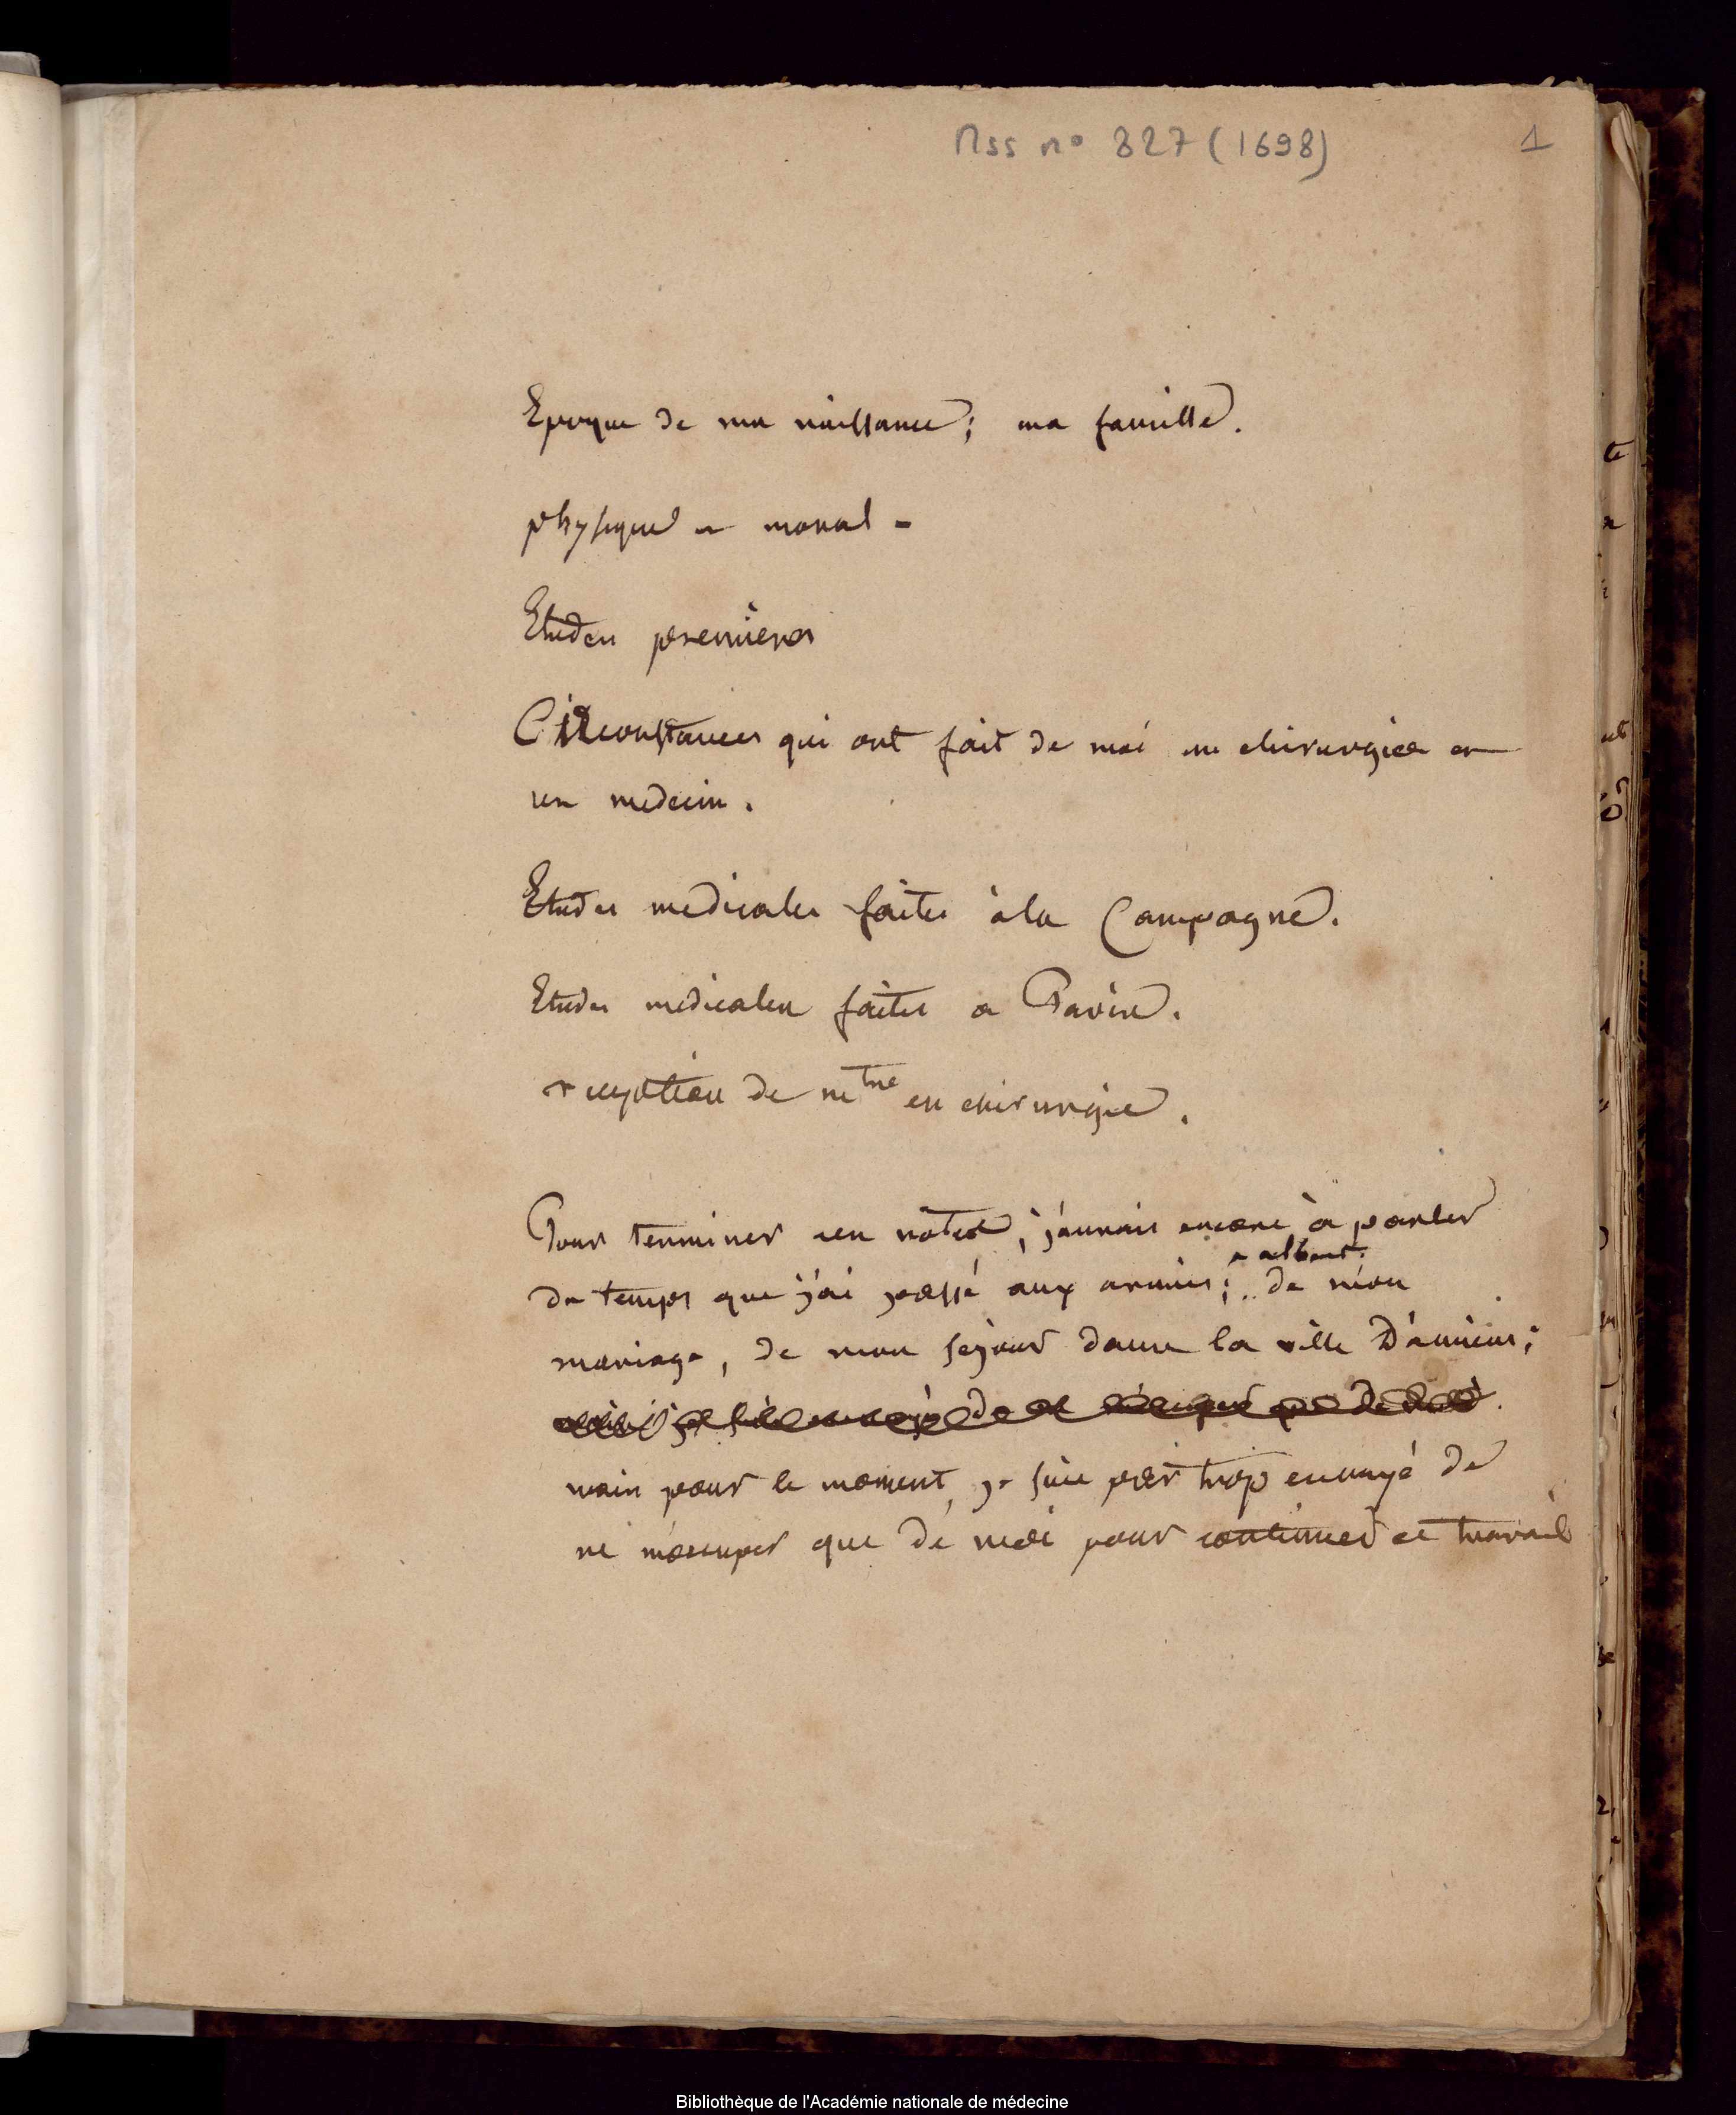 Mss n° 327 (1698)
1
Epoque de ma naissance; ma famille.
physique et moral -
Etudes premieres
Circonstances qui ont fait de moi un chirurgien et
un medecin.
Etudes medicales faites à la Campagne.
Etudes medicales faites a Paris.
reception de mtre en chirurgie.
Pour terminer ces notes, j'aurais encore à parler
du temps que j'ai passé aux armées; de mon
mariage, de mon sejour dans la ville D'amiens;
mais pour le moment, je suis par trop ennuyé de
ne m'occuper que de moi pour continuer ce travail
Bibliothèque de l'Académie nationale de médecine